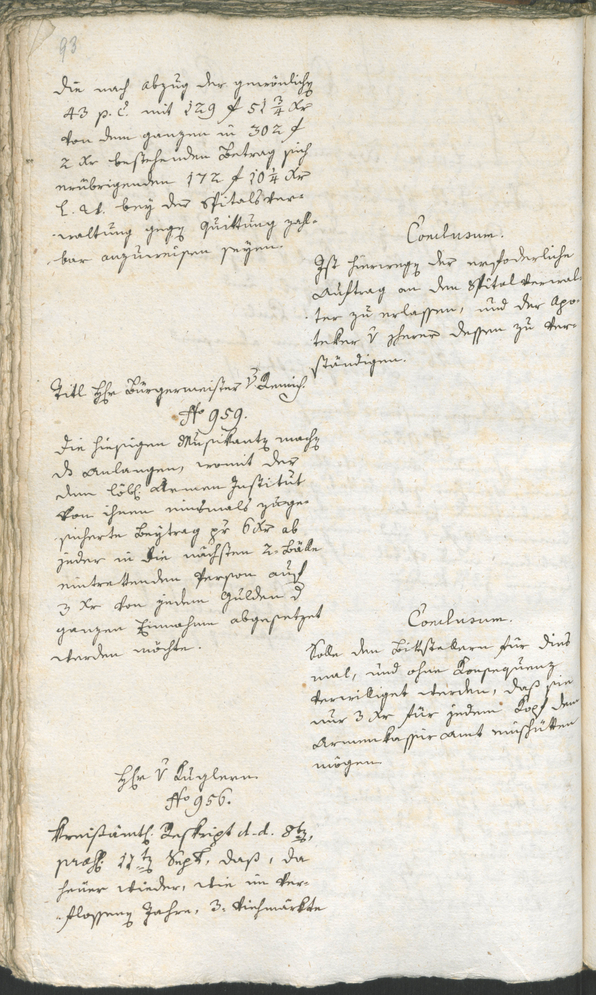 93
die nach Abzug der gewönlich
43 p. C. mit 129 f 51 3/4 Xr
von dem ganzen in 302 f
2 Xr bestehenden Betrag sich
erübrigenden 172 f 10 1/4 Xr
bey der Spitalsver-
waltung gegen Quittung zahl-
bar anzuweisen seyen.
Conclusum.
Ist hierwegen der erfoderliche
Auftrag an den Spitalverwal-
ter zu erlassen, und der Apo-
teker dessen zu ver-
ständigen.
Titl. Hr. Bürgermeister v.
No 959.
Die hiesigen Musikanten machen
das Anlangen, womit der
dem löbl. Armen Institut
von ihnen niemals zuge-
sicherte Beytrag pr 6 Xr ab
jeder in die nächsten 2. Bälle
eintrettenden Person auf
3 Xr von jedem Gulden der
ganzen Einnahme abgesetzet
werden möchte.
Conclusum.
Solle den Bittstellern für dies
mal, und ohne Konsequenz
verwilliget werden, daß sie
nur 3 Xr für jedem Kopf dem
Armenkassieramt
mögen
Hr. v. Kuglern.
No 956.
Kreisämtl. Reskript d. d. 8ten,
praes. 11ten Sept., daß, da
heuer wieder, wie im ver-
flossenen Jahre, 3. Viehmärkte